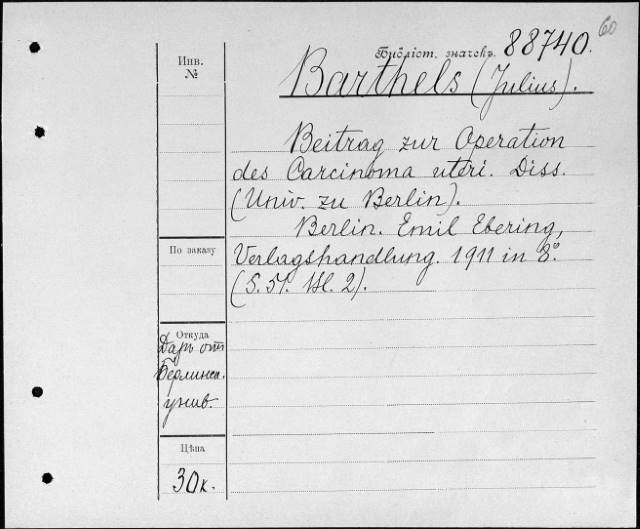 60
Инв.
№
Библіот. значекъ. 88740.
Barthels (Julius).
Beitrag zur Operation
des Carcinoma uteri. Diss.
(Univ. zu Berlin).
Berlin. Emil Ebering,
Verlagshandlung. 1911 in 8º.
(S. 51. Bl. 2).
По заказу
Откуда
Даръ отъ
Берлинск.
унив.
Цѣна
30 к.